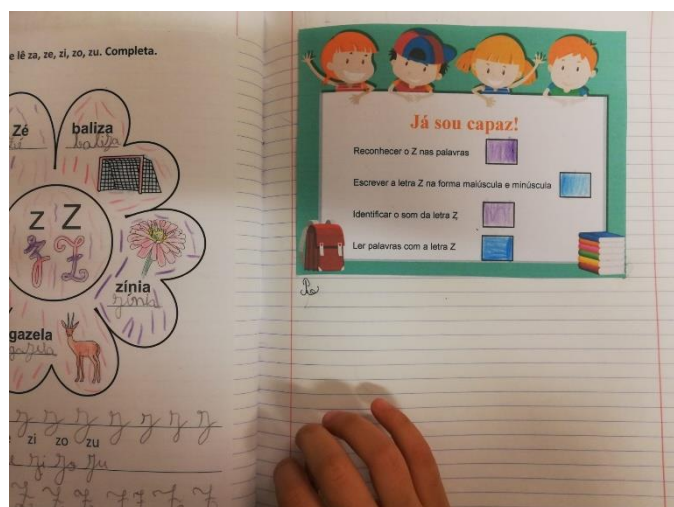 e lê za, ze, zi, zo, zu. Completa.
Zé
baliza
baliza
z Z
z Z
zínia
zínia
gazela
gazela
z z z z z z z
zi zo zu
zi zo zu
Z Z Z Z Z Z
Já sou capaz!
Reconhecer o Z nas palavras
Escrever a letra Z na forma maiúscula e minúscula
Identificar o som da letra Z
Ler palavras com a letra Z